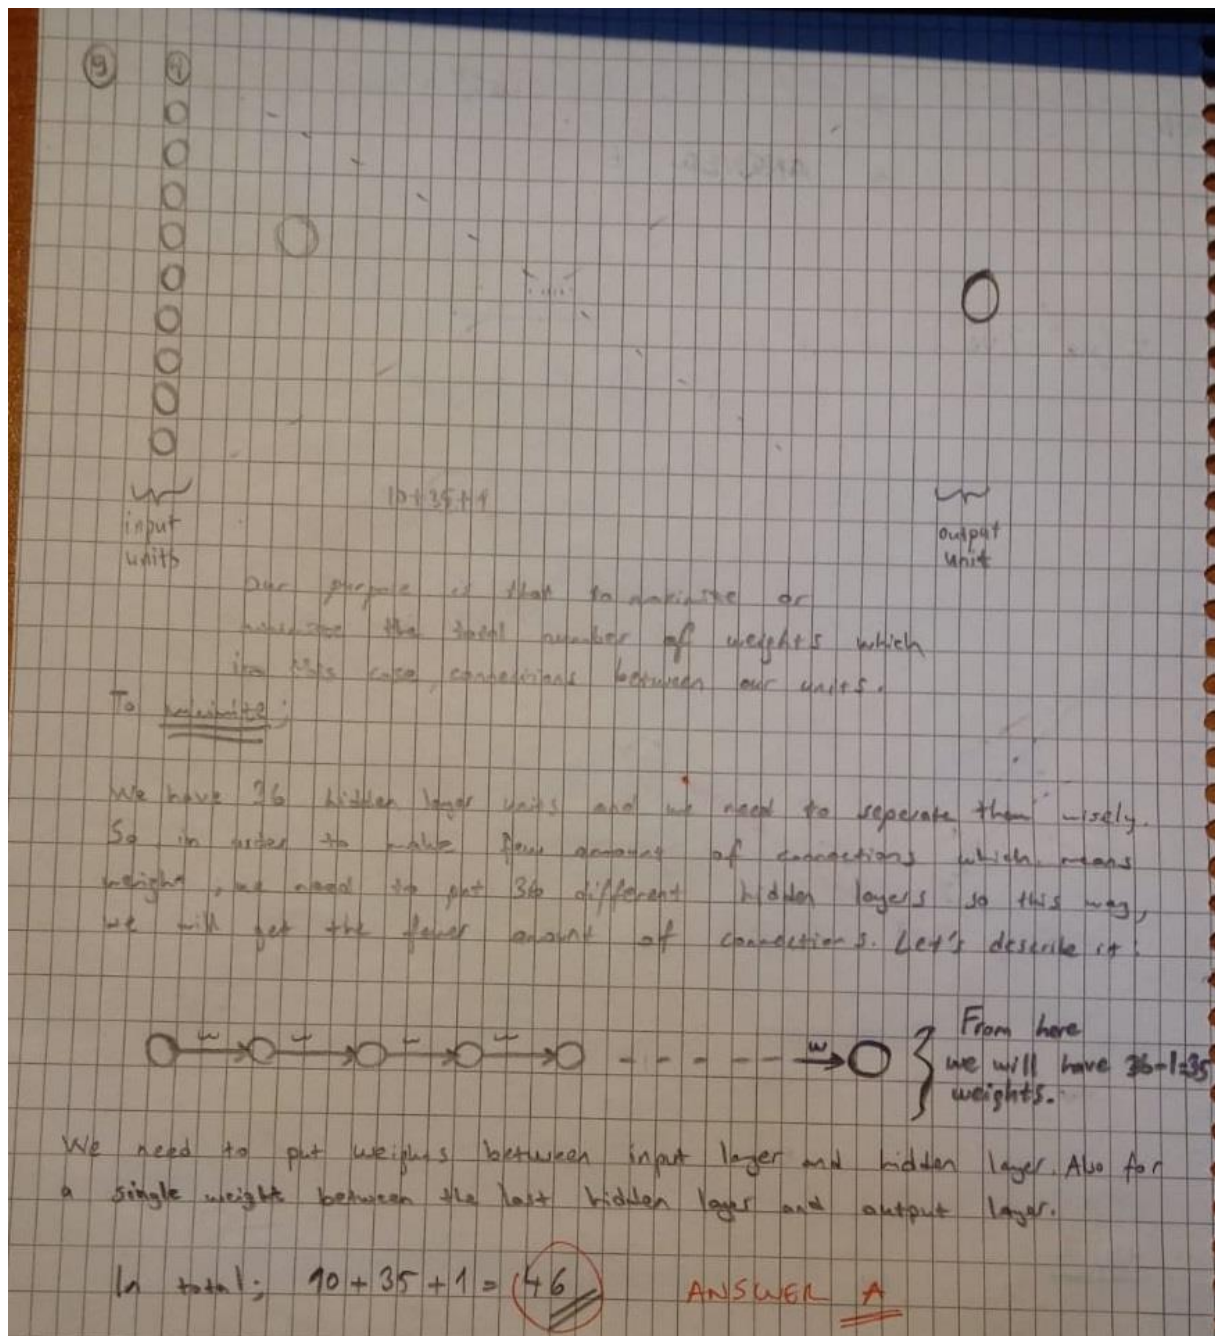 9
input
units
10+35+1
output
unit
Our purpose is that to or
the total number of weights which
in this case, connections between our units.
To
We have 36 hidden layer units and we need to seperate them wisely.
So in order to make amount of connections which means
weight, we need to put 36 different hidden layers so this way,
we will get the fewer amount of connections. Let's describe it.
w w
From here
we will have 36-1=35
weights.
We need to put weights between input layer and hidden layer. Also for
a single weight between the last hidden layer and output layer.
In total; 10+35+1= 46 ANSWER A